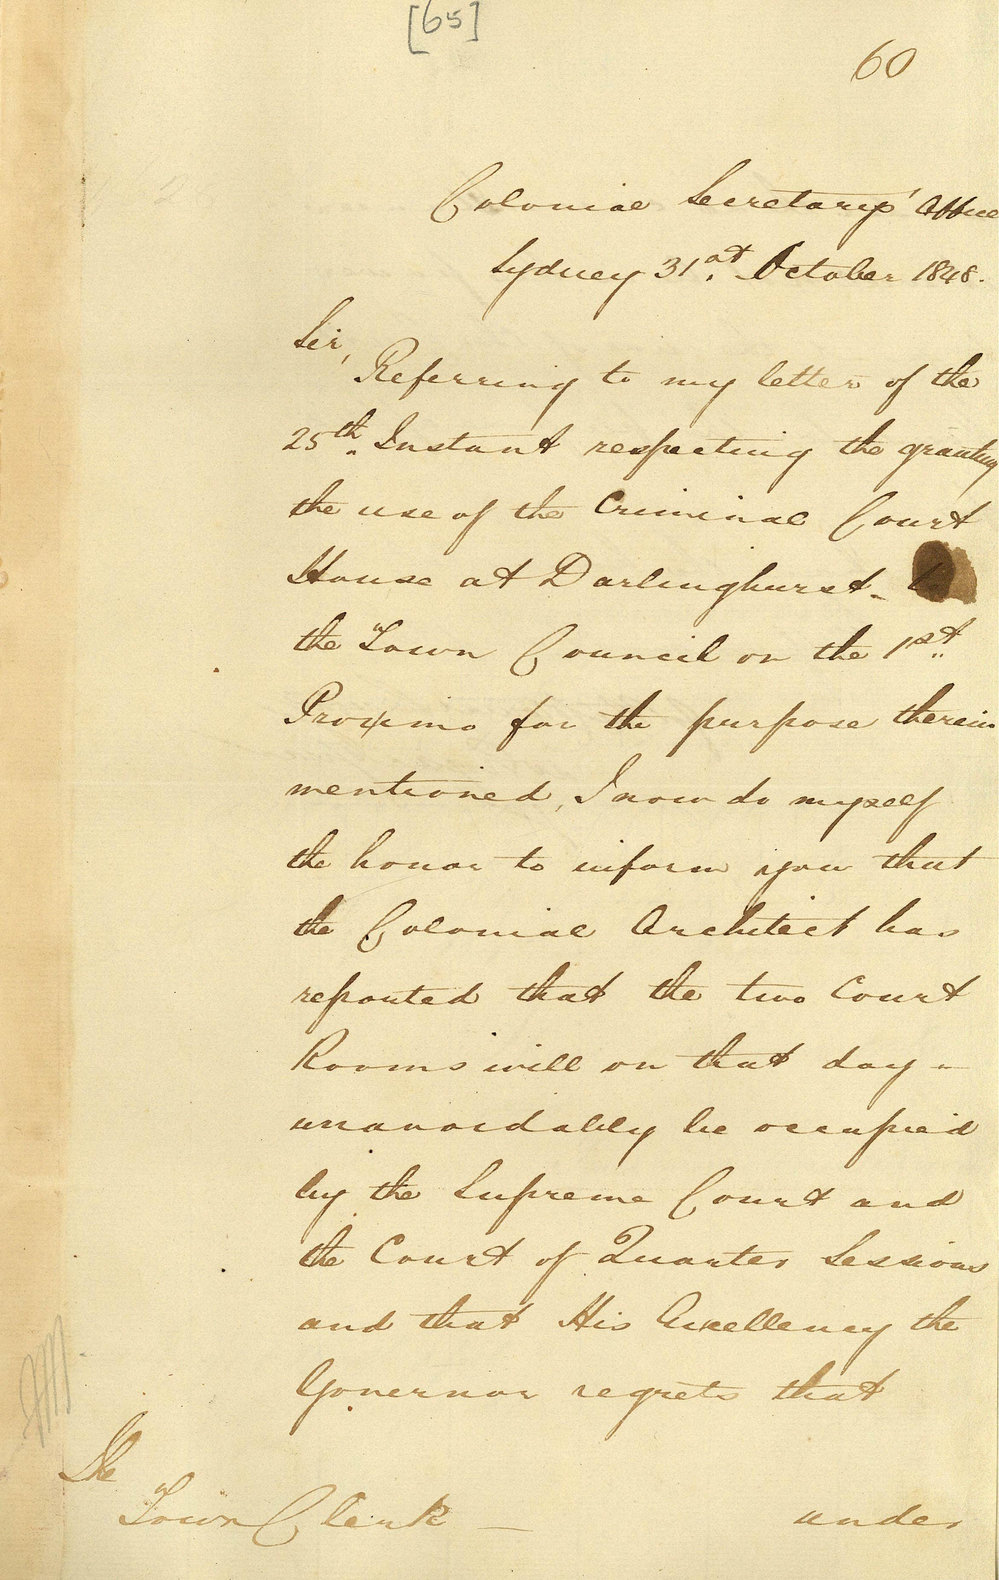 [65]
60
Colonial Secretary's Office
Sydney 31st. October 1848.
Sir,
Referring to my letter of the
25th. Instant respecting the granting
the use of the Criminal Court
House at Darlinghurst -
the Town Council on the 1st.
Proximo for the purpose therein
mentioned, I now do myself
the honor to inform you that
the Colonial Architect has
reported that the two Court
Rooms will on that day -
unavoidably be occupied
by the Supreme Court and
the Court of Quarter Sessions
and that His Excellency the
Governor regrets that
The
Town Clerk —
under